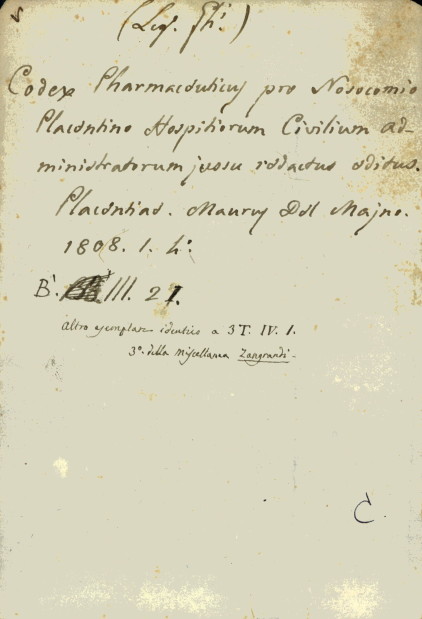 (Leg. Fhi.)
Codex Pharmaceuticus pro Nosocomio
Placentino Hospitiorum Civilium ad-
ministratorum jussu redactus editus.
Placentiae. Maurus Del Majno.
1808. 1. 4o.
B1. III. 27.
Altro esemplare identico a 3T. IV. 1.
3o. della Miscellanea Zangrandi-
C.